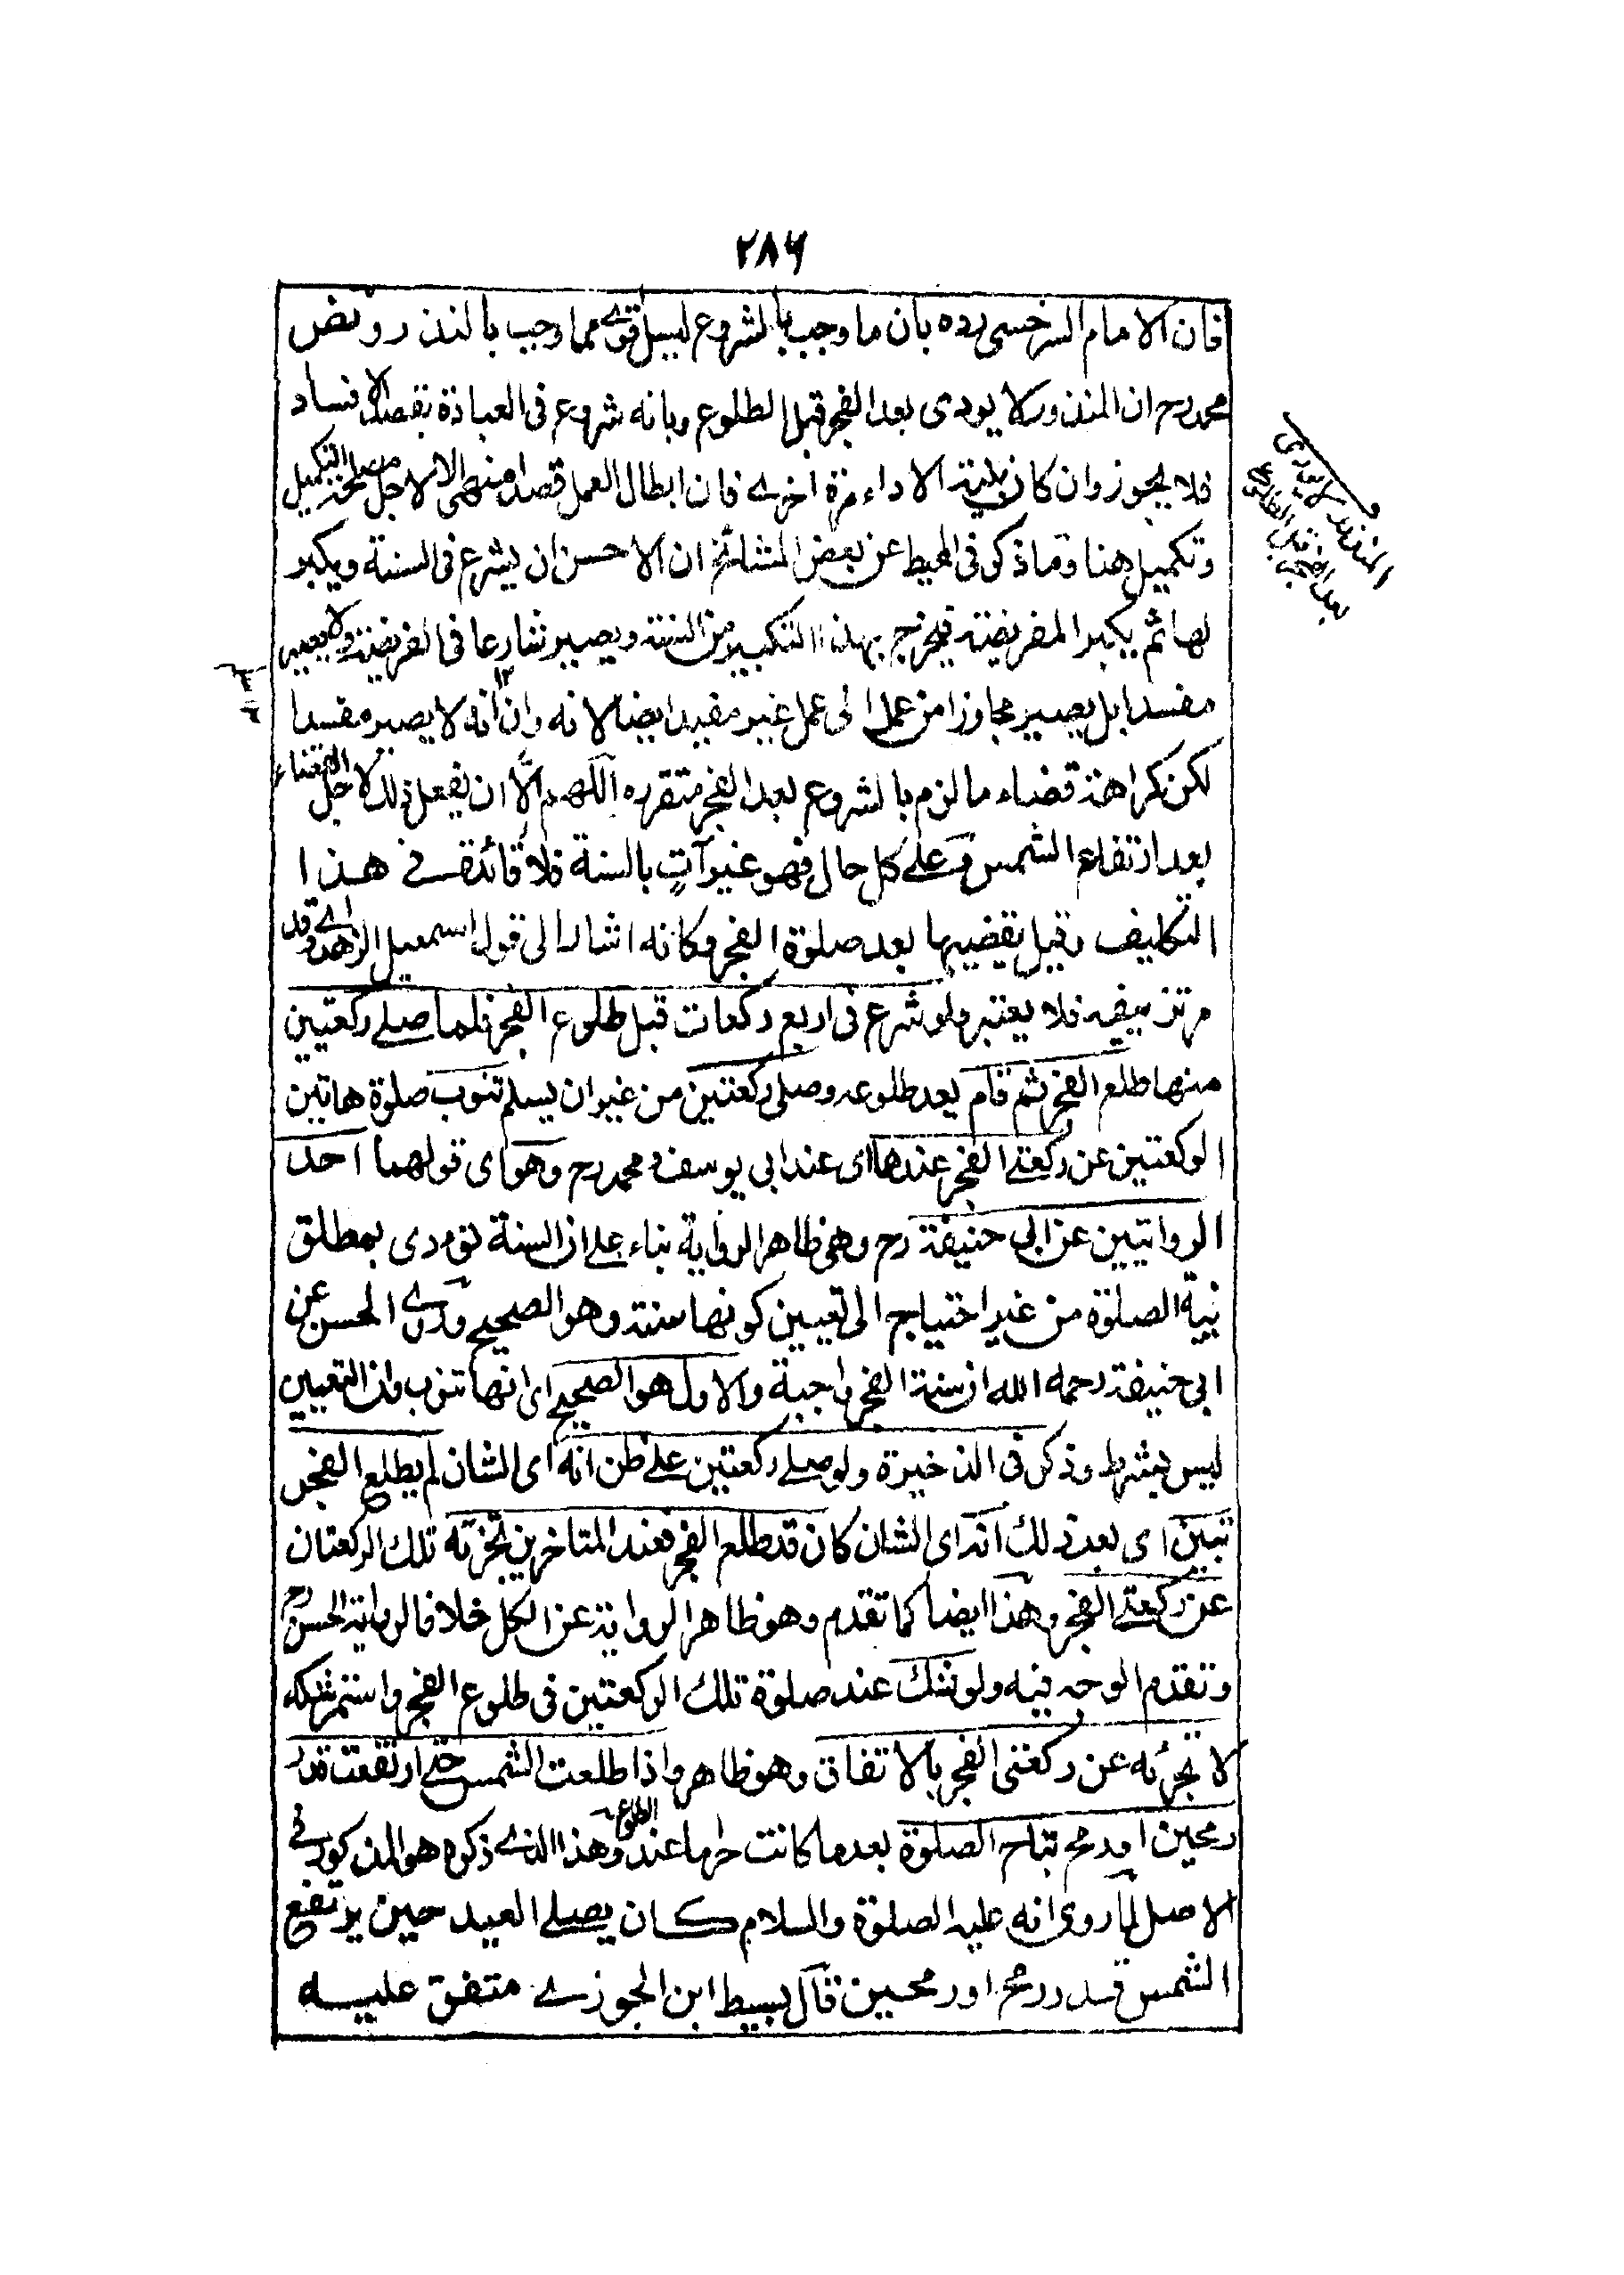 ۲۸۶
فان الامام السرخسی رده بان ما وجب بالشروع لیس باقوے مما وجب بالنذر ونص
محمد رح ان المنذور لا یودی بعد الفجر قبل الطلوع وبانه شروع فی العبادة بقصد الافساد
فلا یجوز وان کان بنیة الاداء مرة اخرے فان ابطال العمل قصدا منهی الا لاجل مصلحة التکمیل
وتکمیل هنا وما ذکر فی المحیط عن بعض المشائخ ان الاحسن ان یشرع فی السنة ویکبر
لها ثم یکبر الفریضة فیخرج بهذا التکبیر من السنة ویصیر شارعا فی الفریضة ولا یصیر
مفسدا بل یصیر مجاوزا من عمل الی عمل غیر مفید ایضا لانه وان انه لا یصیر مفسدا
لکن کراهة قضاء ما لزم بالشروع بعد الفجر متقررة اللهم الّا ان یفعل ذلک لاجل القضاء
بعد ارتفاع الشمس وعلے کل حال فهو غیر آتٍ بالسنة فلا فائدة فے هذا
التکلیف وقیل یقضیها بعد صلوة الفجر وکانه اشار الی قول اسمعیل الزاهد اے وقد
مر تزییفه فلا یعتبر ولو شرع فی اربع رکعات قبل طلوع الفجر فلما صلے رکعتین
منها طلع الفجر ثم قام بعد طلوعه وصلی رکعتین من غیر ان یسلم تنوب صلوة هاتین
الرکعتین عن رکعتے الفجر عندهما ای عند ابی یوسف ومحمد رح وهو ای قولهما احد
الروایتین عن ابی حنیفة رح وهی ظاهر الروایة بناء علے ان السنة تؤدی بمطلق
نیة الصلوة من غیر احتیاج الی تعیین کونها سنة وهو الصحیح وروے الحسن عن
ابی حنیفة رحمه الله ان سنة الفجر واجبة والاول هو الصحیح ای انها تنوب وان التعیین
لیس بشرط وذکر فی الذخیرة ولو صلے رکعتین علے ظن انه ای الشان لم یطلع الفجر
تبین ای بعد ذلک انه ای الشان کان قد طلع الفجر فعند المتاخرین تجزئه تلک الرکعتان
عن رکعتے الفجر وهذا ایضا کما تقدم وهو ظاهر الروایة عن الکل خلافا لروایة الحسن رح
وتقدم الوجه فیه ولو شک عند صلوة تلک الرکعتین فی طلوع الفجر واستمر شکه
لا تجزئه عن رکعتی الفجر بالاتفاق وهو ظاهر واذا طلعت الشمس حتے ارتفعت قدر
رمحین او رمح تباح الصلوة بعد ما کانت حراما عند الطلوع وهذا الذے ذکره هو المذکور فے
الاصل لما روی انه علیه الصلوة والسلام کان یصلے العید حین یرتفع
الشمس قدر رمح او رمحین قال سبط ابن الجوزے متفق علیه
المنذور لا یودی
بعد الفجر قبل الطلوع